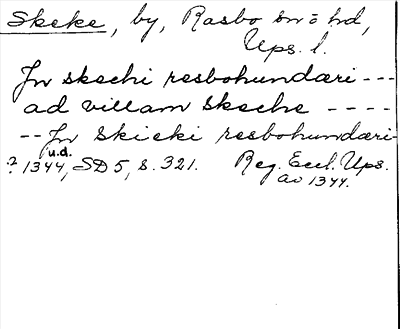 Skeke, by, Rasbo sn o hd,
Ups. l.
Jn skechi rasbohundæri ---
ad villam Skeche ----
-- Jn Skieki rasbohundæri-
u.d.
? 1344, SD 5, s. 321. Reg. Eccl. Ups.
av 1344.